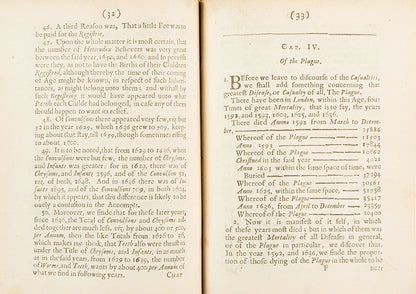 (32)
46. A third Reason was, That a little Fee was to
be paid for the Registry.
47. Upon the whole matter it is most certain, that
the number of Heterodox Believers was very great
between the said year 1650, and 1660, and so peevish
were they, as not to have the Births of their Children
Registred, although thereby the time of their coming
of Age might be known, in respect of such Inheri-
tances, as might belong unto them; and withal by
such Registring it would have appeared unto what
Parish each Childe had belonged, in case any of them
should happen to want its relief.
48. Of Convulsions there appeared very few, viz. but
52 in the year 1629, which 1636 grew to 709, keep-
ing about that stay, till 1659, though sometimes rising
to about 1000.
49. It is to be noted, that from 1629 to 1636, when
the Convulsions were but few, the number of Chrysoms,
and Infants was greater: for in 1629, there was of
Chrysoms, and Infants 2596, and of the Convulsion 52,
viz. of both, 2648. And in 1636 there was of In-
fants 1895, and of the Convulsions 709, in both 2604,
by which it appears, that this difference is likely to be
onely a confusion in the Accompts.
50. Moreover, we finde that for these later years,
since 1636, the Total of Convulsions and Chrysoms ad-
ded together are much less, viz. by about 400 or 500,
per Annum, then the like Totals from 1626 to 36,
which makes me think, that Teeth also were thrust in
under the Title of Chrysoms, and Infants, in as much
as in the said years, from 1629 to 1636, the number
of Worms, and Teeth, wants by about 400 per Annum of
what we find in following years.
CHAP
(33)
CAP. IV.
Of the Plague.
1. Before we leave to discourse of the Casualties,
we shall add something concerning that
greatest Disease, or Casualty of all, The Plague.
There have been in London, within this Age, four
Times of great Mortality, that is to say, the years
1592, and 1593, 1603, 1625, and 1636.
There died Anno 1592 from March to Decem-
ber, 25886
Whereof of the Plague 11503
Anno 1593 17844
Whereof of the Plague 10662
Christned in the said year 4021
Anno 1603 within the same space of time, were
Buried 37294
Whereof of the Plague 30561
Anno 1625, within the same space, 51758
Whereof of the Plague 35417
Anno 1636, from April to December 23359
Whereof of the Plague 10400
2. Now it is manifest of it self, in which
of these years most died; but in which of them was
the greatest Mortality of all Diseases in general,
or of the Plague in particular, we discover thus.
In the year 1592, and 1636, we finde the propor-
tion of those dying of the Plague in the whole to be
F
near